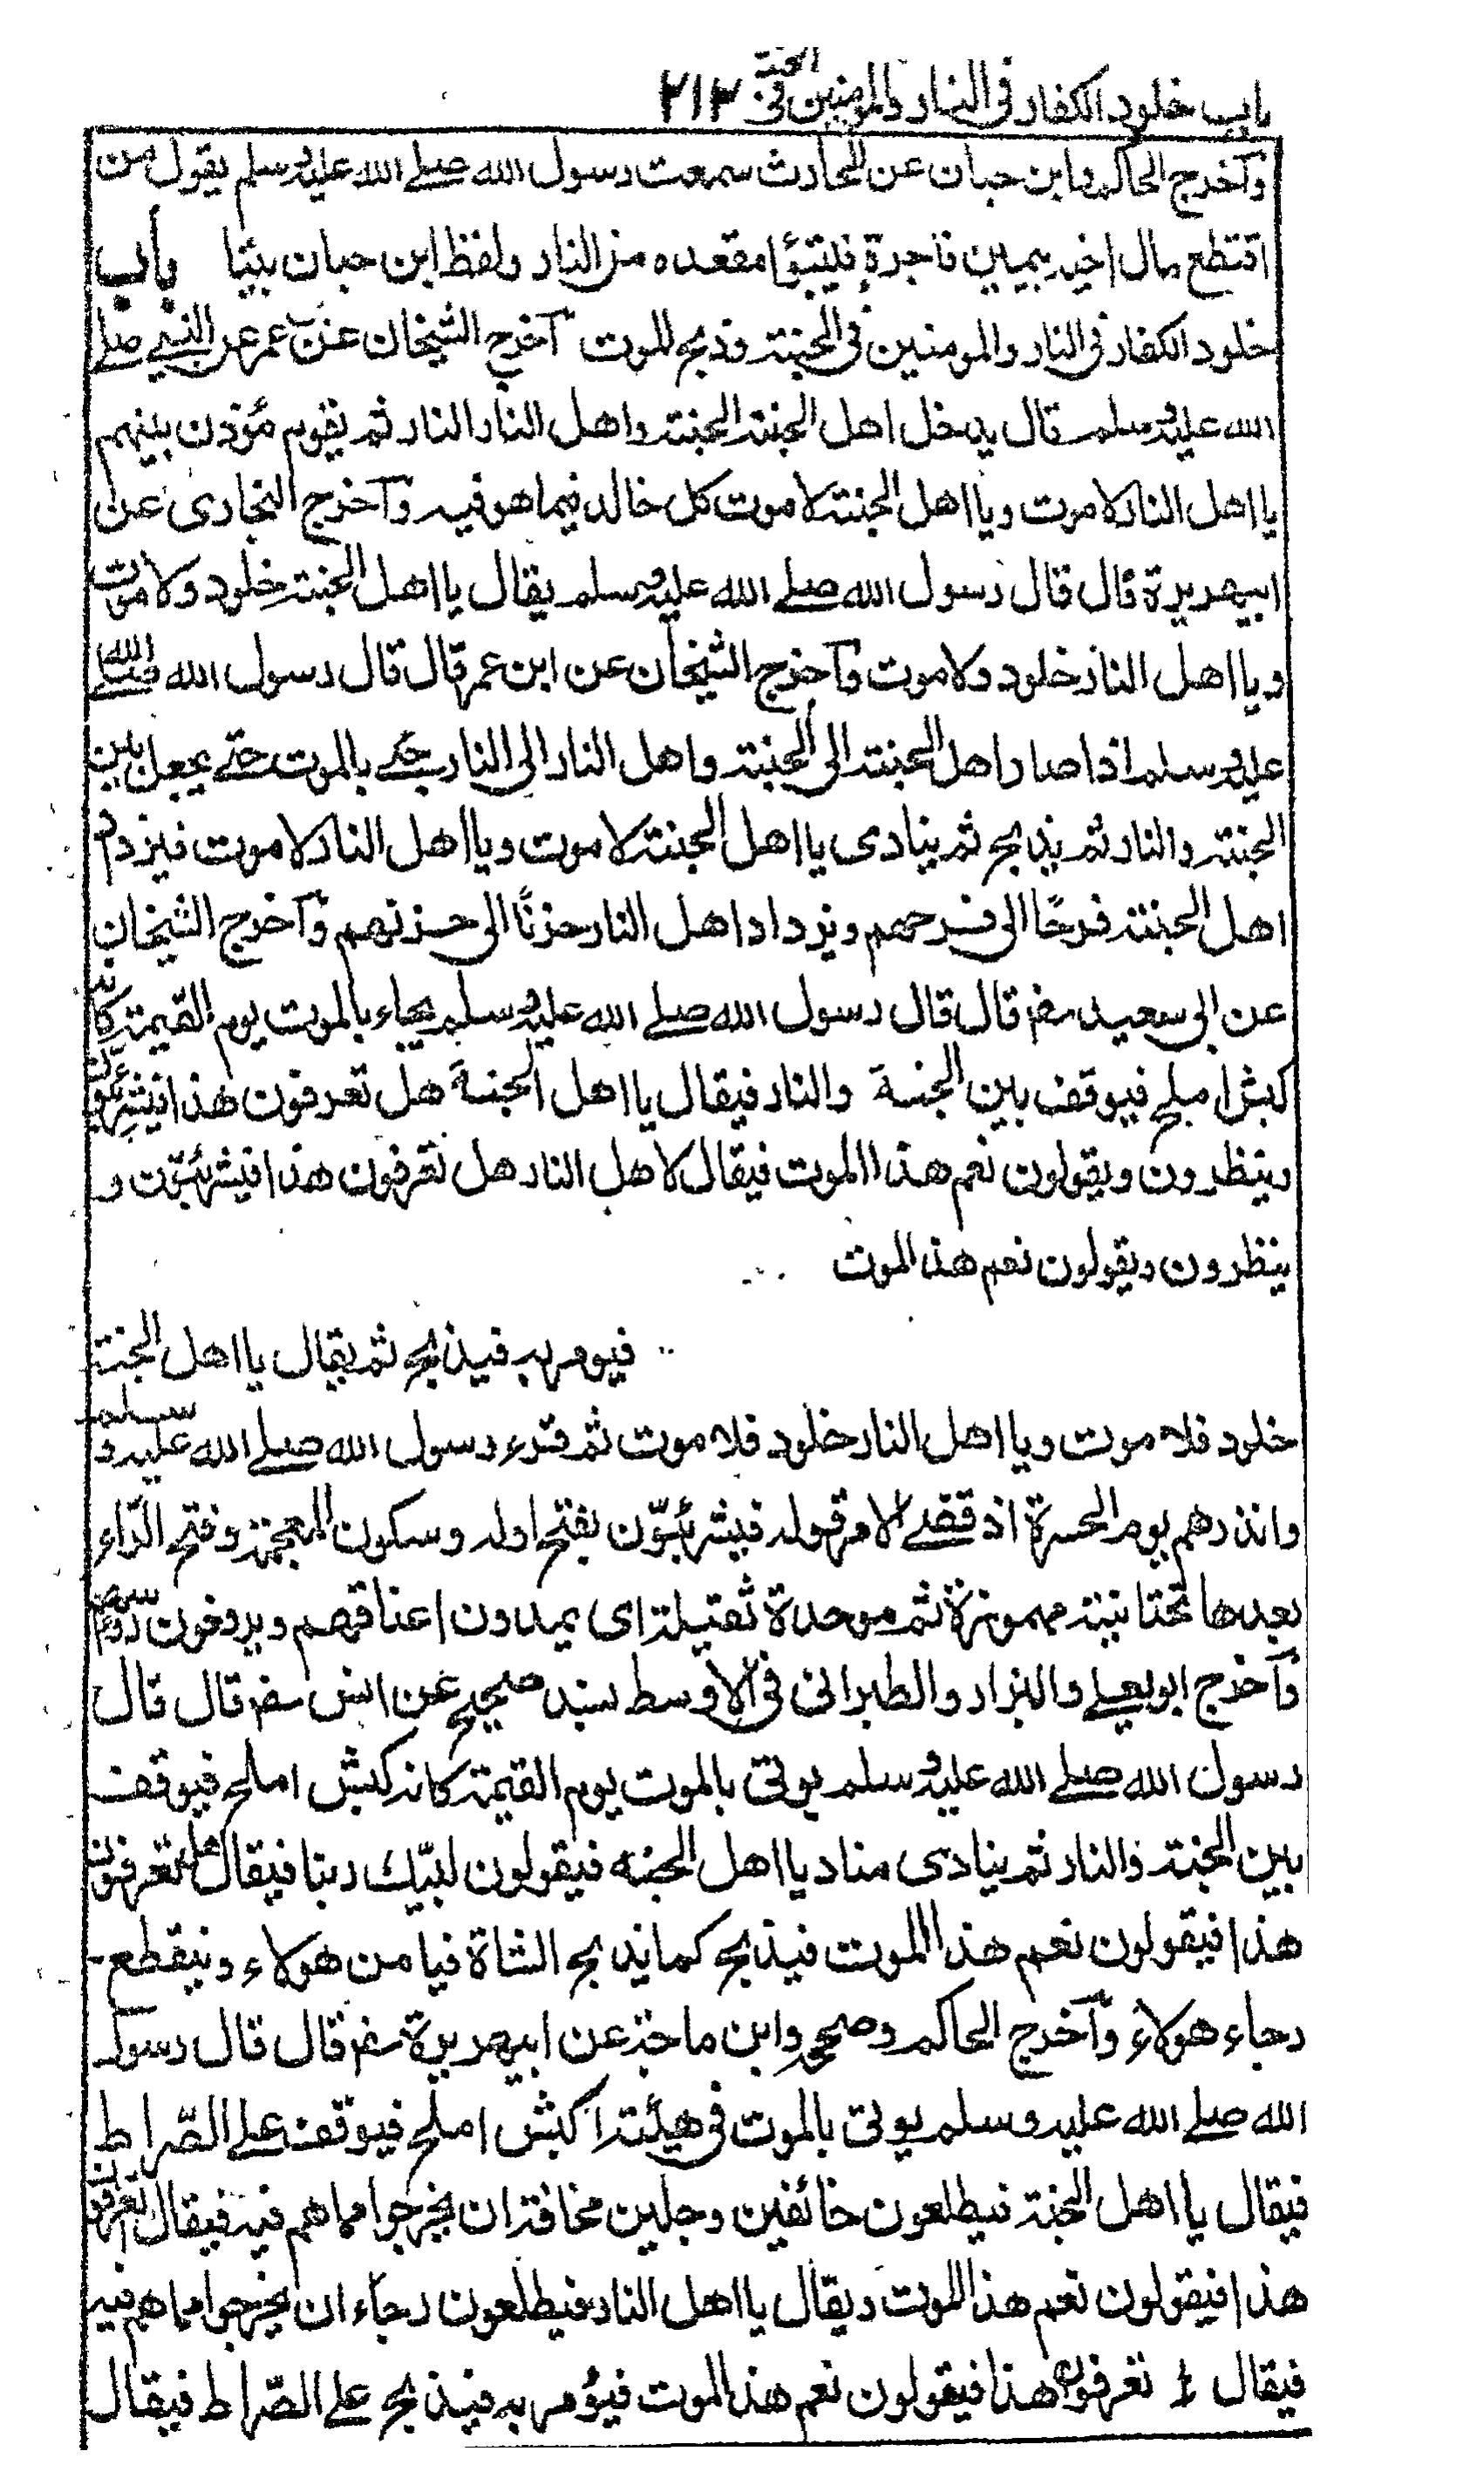 باب خلود الكفار فى النار والمومنين فى الجنة ٢١٣
وآخرج الحاكم وابن حبان عن الحارث سمعت رسول الله صلے الله عليه وسلم يقول من
اقتطع مال اخيه بيمين فاجرة فليتبؤا مقعده من النار ولفظ ابن حبان بيتا باب
خلود الكفار فى النار والمومنين فى الجنة وذبح الموت آخرج الشيخان عن عمر عن النبى صلے
الله عليه وسلم قال يدخل اهل الجنة الجنة واهل النار النار ثم يقوم مؤذن بينهم
يا اهل النار لا موت ويا اهل الجنة لا موت كل خالد فيما هو فيه وآخرج البخارى عن
ابيهريرة قال قال رسول الله صلے الله عليه وسلم يقال يا اهل الجنة خلود ولا موت
ويا اهل النار خلود ولا موت وآخرج الشيخان عن ابن عمر قال قال رسول الله صلے الله
عليه وسلم اذا صار اهل الجنة الى الجنة واهل النار الى النار جئ بالموت حتے يجعل بين
الجنة والنار ثم يذبح ثم ينادى يا اهل الجنة لا موت ويا اهل النار لا موت فيزداد
اهل الجنة فرحًا الى فرحهم ويزداد اهل النار حزنًا الى حزنهم وآخرج الشيخان
عن ابى سعيد رضـ قال قال رسول الله صلے الله عليه وسلم يجاء بالموت يوم القيمة كانه
كبش املح فيوقف بين الجنة والنار فيقال يا اهل الجنة هل تعرفون هذا فيشرئبون
وينظرون ويقولون نعم هذا الموت فيقال لاهل النار هل تعرفون هذا فيشرئبّون و
ينظرون ويقولون نعم هذا الموت
فيومر به فيذبح ثم يقال يا اهل الجنة
خلود فلا موت ويا اهل النار خلود فلا موت ثم قرء رسول الله صلے الله عليه وسلم
وانذرهم يوم الحسرة اذ قضے الامر قوله فيشرئبّون بفتح اوله وسكون المعجمة وفتح الرّاء
بعدها تحتانية مهموزة ثم موحدة ثقيلة اى يمدون اعناقهم ويرفعون رؤسهم
وآخرج ابويعلے والبزار والطبرانى فى الاوسط بسند صحيح عن انس رضـ قال قال
رسول الله صلے الله عليه وسلم يوتى بالموت يوم القيمة كانه كبش املح فيوقف
بين الجنة والنار ثم ينادى مناد يا اهل الجنه فيقولون لبّيك ربنا فيقال هل تعرفون
هذا فيقولون نعم هذا الموت فيذبح كما يذبح الشاة فيامن هولاء وينقطع
رجاء هولاء وآخرج الحاكم وصححه وابن ماجة عن ابيهريرة رضـ قال قال رسول
الله صلے الله عليه وسلم يوتى بالموت فى هيئة كبش املح فيوقف على الصّراط
فيقال يا اهل الجنة فيطلعون خائفين وجلين مخافة ان يخرجوا مما هم فيه فيقال اتعرفون
هذا فيقولون نعم هذا الموت ويقال يا اهل النار فيطلعون رجاء ان يخرجوا مما هم فيه
فيقال أ تعرفون هذا فيقولون نعم هذا الموت فيؤمر به فيذبح على الصّراط فيقال